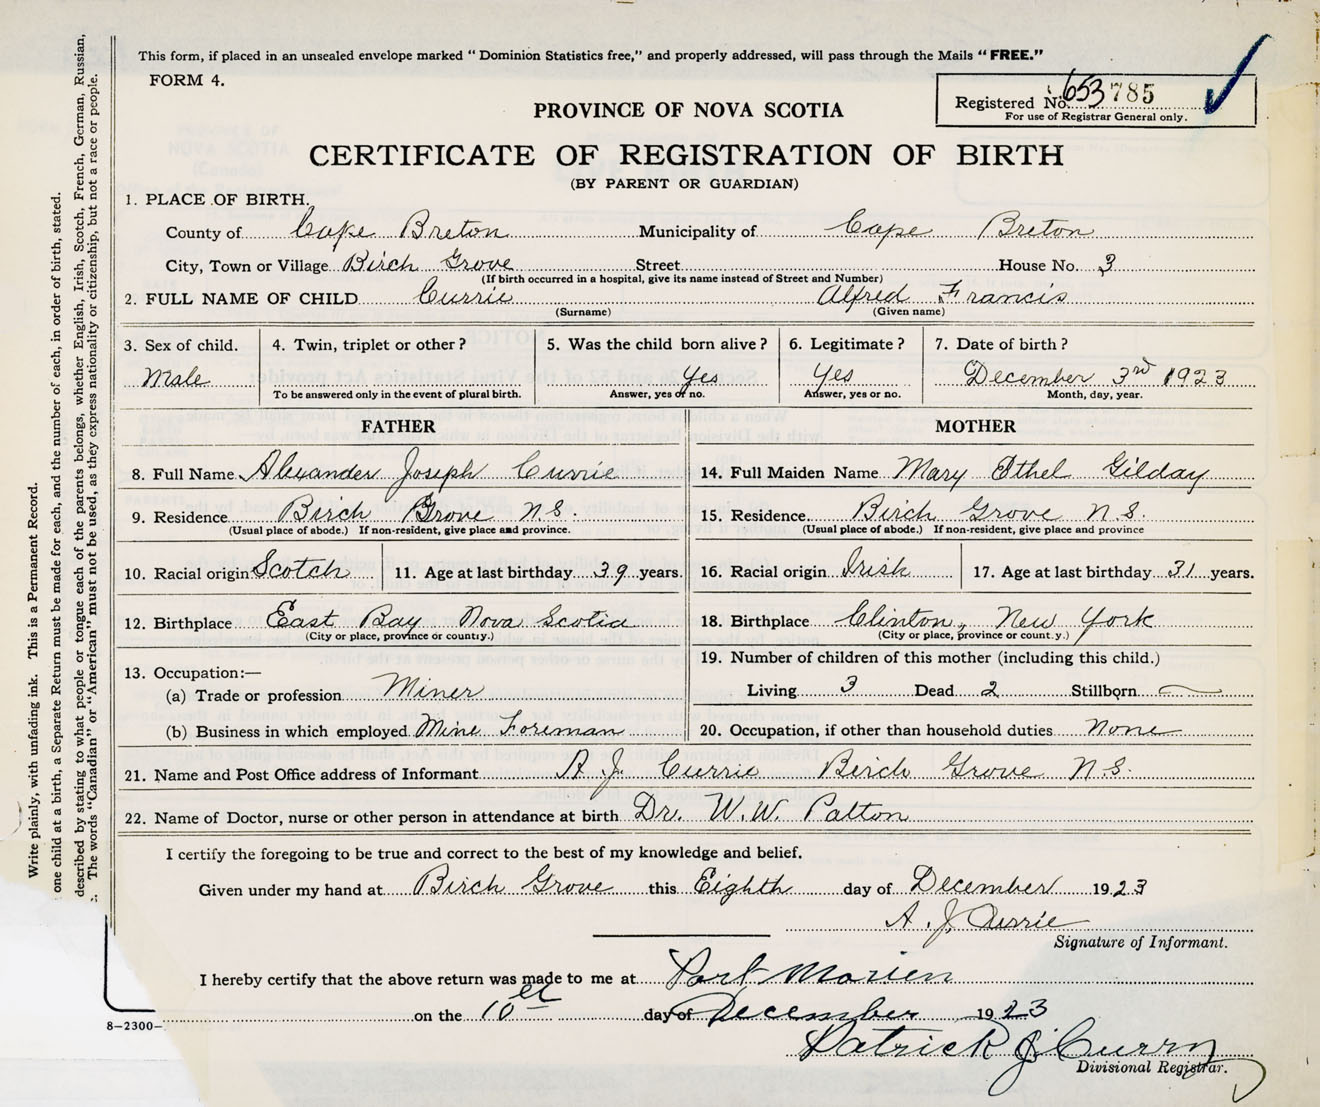 This form, if placed in an unsealed envelope marked "Dominion Statistics free," and properly addressed, will pass through the Mails "FREE."
FORM 4.
Registered No. 653785
For use of Registrar General only.
PROVINCE OF NOVA SCOTIA
CERTIFICATE OF REGISTRATION OF BIRTH
(BY PARENT OR GUARDIAN)
1. PLACE OF BIRTH.
County of Cape Breton Municipality of Cape Breton
City, Town or Village Birch Grove Street House No. 3
(If birth occurred in a hospital, give its name instead of Street and Number)
2. FULL NAME OF CHILD Currie Alfred Francis
(Surname) (Given name)
3. Sex of child. 4. Twin, triplet or other? 5. Was the child born alive? 6. Legitimate? 7. Date of birth?
Male Yes Yes December 3rd 1923
To be answered only in the event of plural birth. Answer, yes or no. Answer, yes or no. Month, day, year.
FATHER MOTHER
8. Full Name Alexander Joseph Currie 14. Full Maiden Name Mary Ethel Gilday
9. Residence Birch Grove N.S. 15. Residence Birch Grove N.S.
(Usual place of abode.) If non-resident, give place and province. (Usual place of abode.) If non-resident, give place and province
10. Racial origin Scotch 11. Age at last birthday 39 years. 16. Racial origin Irish 17. Age at last birthday 31 years.
12. Birthplace East Bay Nova Scotia 18. Birthplace Clinton, New York
(City or place, province or county.) (City or place, province or count.y.)
13. Occupation:—
(a) Trade or profession Miner
(b) Business in which employed Mine Foreman
19. Number of children of this mother (including this child.)
Living 3 Dead 2 Stillborn —
20. Occupation, if other than household duties None
21. Name and Post Office address of Informant A J Currie Birch Grove N.S.
22. Name of Doctor, nurse or other person in attendance at birth Dr. W.W. Patton
I certify the foregoing to be true and correct to the best of my knowledge and belief.
Given under my hand at Birch Grove this Eighth day of December 1923
A. J. Currie
Signature of Informant.
I hereby certify that the above return was made to me at Port Morien
on the 10 day of December 1923
Patrick J. Curry
Divisional Registrar.
8-2300-
Write plainly, with unfading ink. This is a Permanent Record.
one child at a birth, a Separate Return must be made for each, and the number of each, in order of birth, stated.
described by stating to what people or tongue each of the parents belongs, whether English, Irish, Scotch, French, German, Russian,
The words "Canadian" or "American" must not be used, as they express nationality or citizenship, but not a race or people.